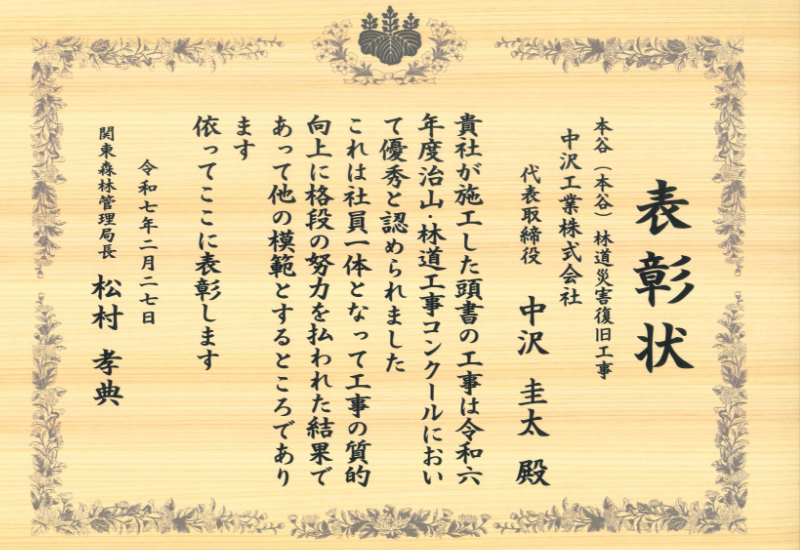 表彰状
本谷（本谷）林道災害復旧工事
中沢工業株式会社
代表取締役 中沢 圭太 殿
貴社が施工した頭書の工事は令和六
年度治山・林道工事コンクールにおい
て優秀と認められました
これは社員一体となって工事の質的
向上に格段の努力を払われた結果で
あって他の模範とするところであり
ます
依ってここに表彰します
令和七年二月二七日
関東森林管理局長 松村 孝典